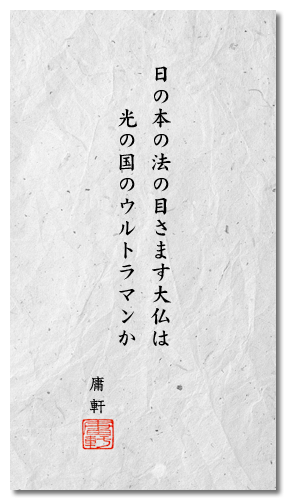 日の本の法の目さます大仏は
光の国のウルトラマンか
庸軒
庸軒